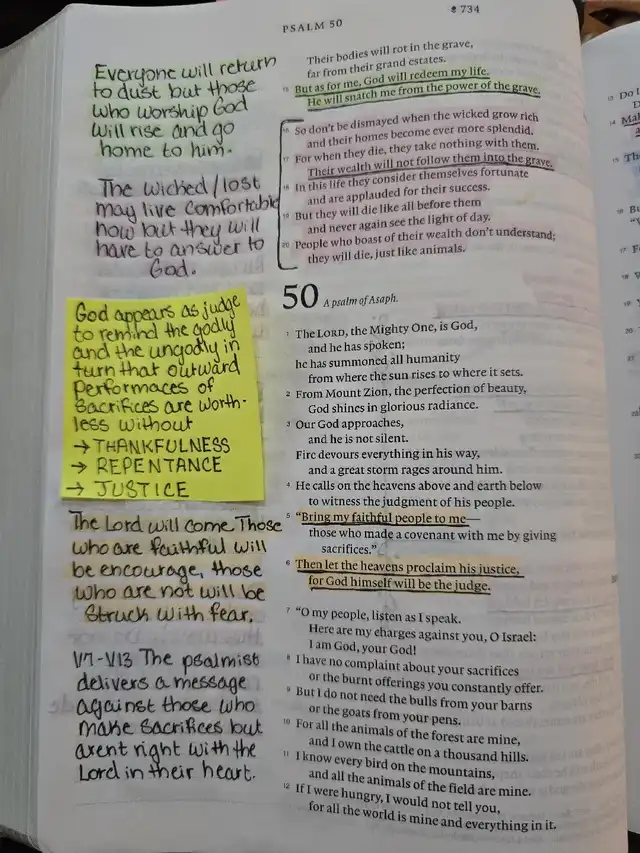 PSALM 50
734
Everyone will return
to dust but those
who worship God
will rise and go
home to him.
The wicked/lost
may live comfortable
now but they will
have to answer to
God.
God appears as judge
to remind the godly
and the ungodly in
turn that outward
Performaces of
Sacrifices are worth-
less without
→ THANKFULNESS
→ REPENTANCE
→ JUSTICE
The Lord will come. Those
who are faithful will
be encourage, those
who are not will be
struck with fear.
V7-V13 The psalmist
delivers a message
against those who
make sacrifices but
arent right with the
Lord in their heart.
Their bodies will rot in the grave,
far from their grand estates.
15 But as for me, God will redeem my life.
He will snatch me from the power of the grave.
16 So don't be dismayed when the wicked grow rich
and their homes become ever more splendid.
17 For when they die, they take nothing with them.
Their wealth will not follow them into the grave.
18 In this life they consider themselves fortunate
and are applauded for their success.
19 But they will die like all before them
and never again see the light of day.
20 People who boast of their wealth don't understand;
they will die, just like animals.
50 A psalm of Asaph.
1 The LORD, the Mighty One, is God,
and he has spoken;
he has summoned all humanity
from where the sun rises to where it sets.
2 From Mount Zion, the perfection of beauty,
God shines in glorious radiance.
3 Our God approaches,
and he is not silent.
Fire devours everything in his way,
and a great storm rages around him.
4 He calls on the heavens above and earth below
to witness the judgment of his people.
5 "Bring my faithful people to me—
those who made a covenant with me by giving
sacrifices."
6 Then let the heavens proclaim his justice,
for God himself will be the judge.
7 "O my people, listen as I speak.
Here are my charges against you, O Israel:
I am God, your God!
8 I have no complaint about your sacrifices
or the burnt offerings you constantly offer.
9 But I do not need the bulls from your barns
or the goats from your pens.
10 For all the animals of the forest are mine,
and I own the cattle on a thousand hills.
11 I know every bird on the mountains,
and all the animals of the field are mine.
12 If I were hungry, I would not tell you,
for all the world is mine and everything in it.